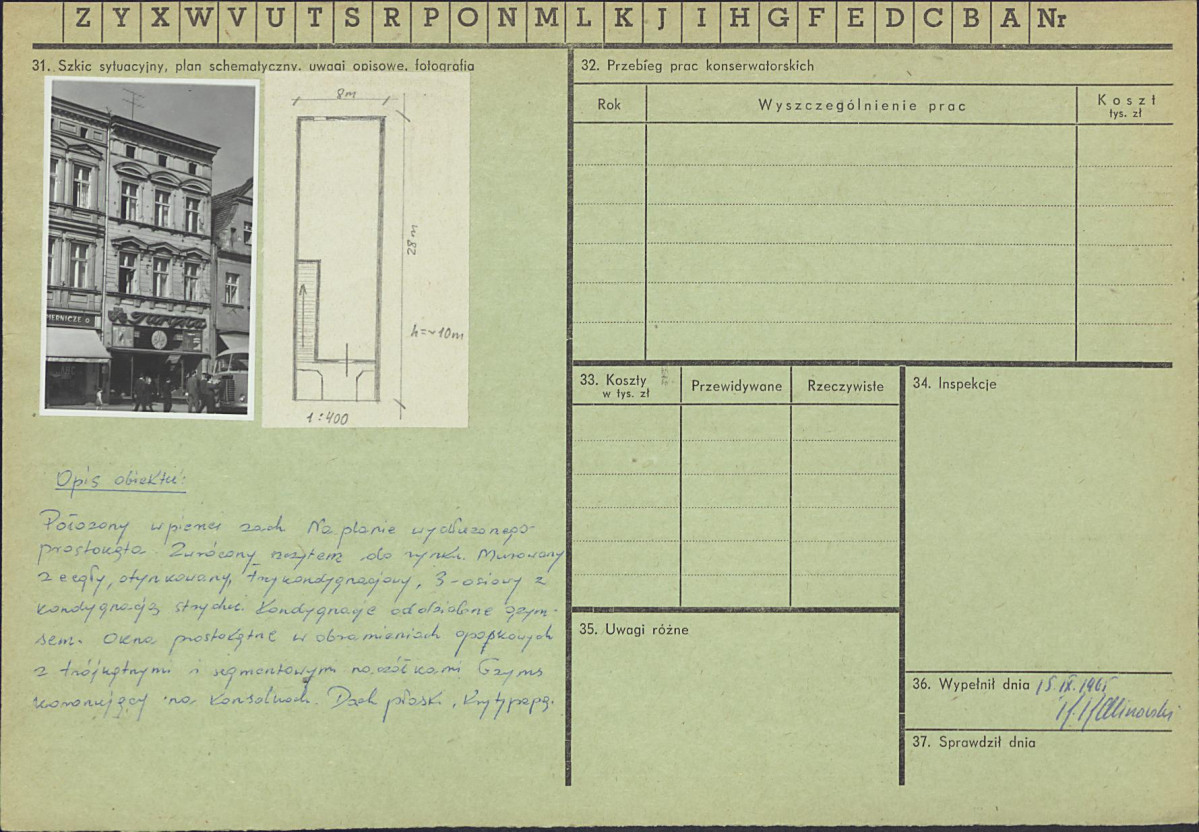 Z Y X W V U T S R P O N M L K J I H G F E D C B A Nr
31. Szkic sytuacyjny, plan schematyczny, uwagi opisowe, fotografia
8m
28 m
h=~10m
1:400
Opis obiektu:
Położony w pierzei zach Na planie wydłużonego
prostokąta. Zwrócony szczytem do rynku. Murowany
z cegły, otynkowany, trzykondygnacjowy, 3-osiowy z
kondygnacją strychu. Kondygnacje oddzielone gzym-
sem. Okna prostokątne w obramieniach opaskowych
z trójkątnymi i segmentowymi naczółkami Gzyms
koronujący na konsolkach. Dach płaski, kryty papą.
32. Przebieg prac konserwatorskich
Rok
Wyszczególnienie prac
Koszt
tys. zł
33. Koszty
w tys. zł
Przewidywane
Rzeczywiste
34. Inspekcje
35. Uwagi różne
36. Wypełnił dnia 15 IX. 1965
37. Sprawdził dnia